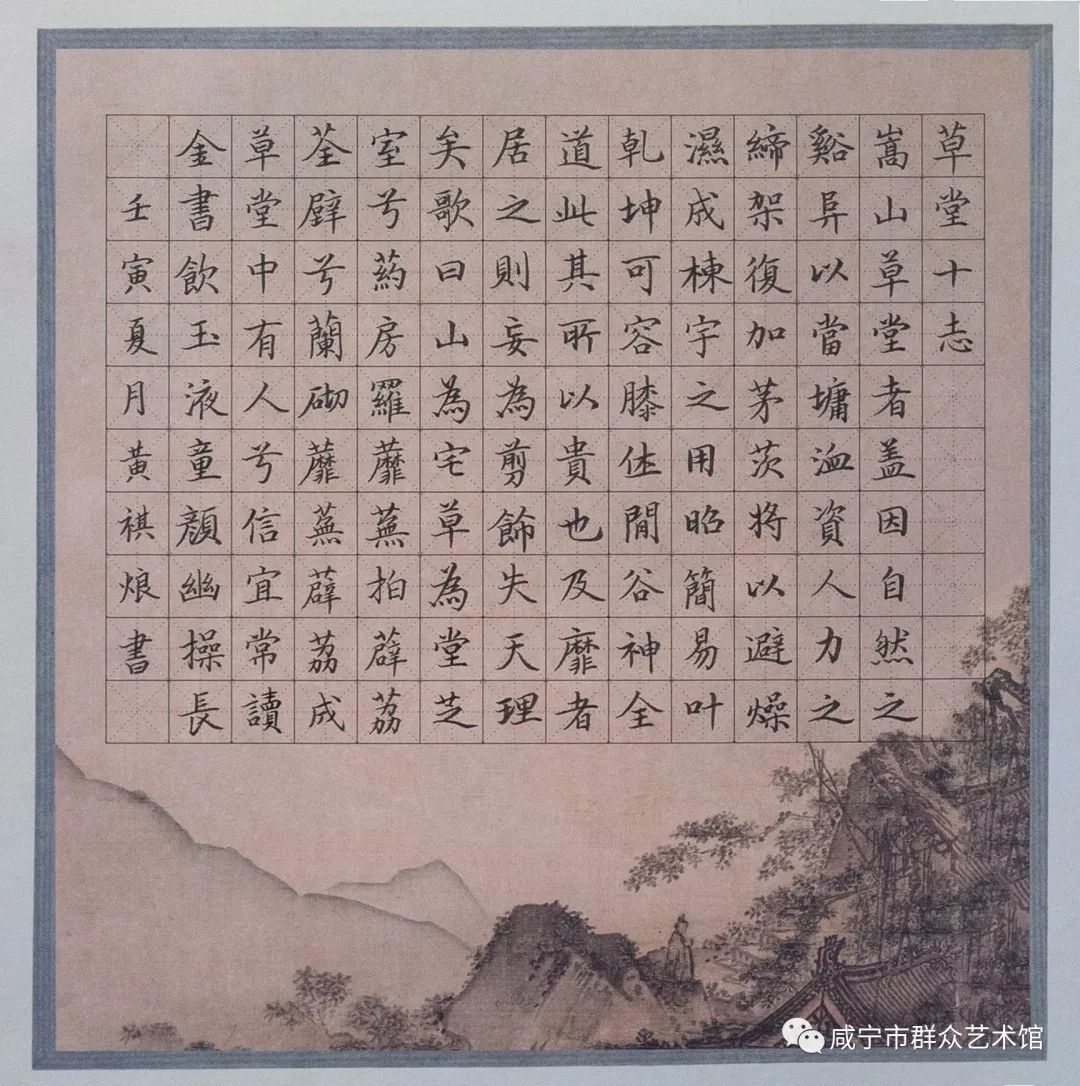 草堂十志
嵩山草堂者盖因自然之
谿异以當墉洫資人力之
締架復加茅茨将以避燥
濕成棟宇之用昭簡易叶
乾坤可容膝休閒谷神全
道此其所以貴也及靡者
居之則妄為剪飾失天理
矣歌曰山為宅草為堂芝
室兮葯房羅蘼蕪拍薜荔
荃壁兮蘭砌蘼蕪薜荔成
草堂中有人兮信宜常讀
金書飲玉液童顔幽操長
壬寅夏月黄祺烺書
咸宁市群众艺术馆